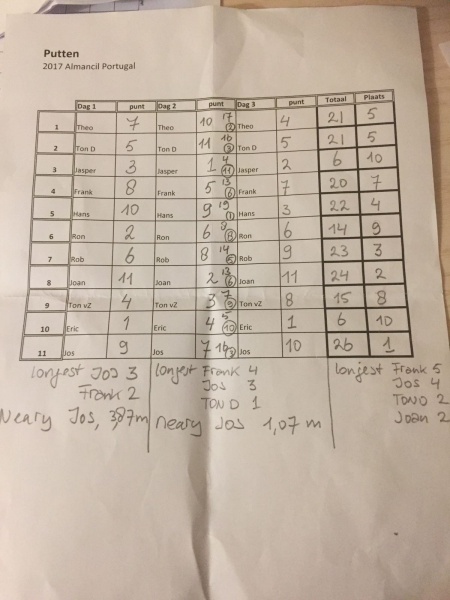 Putten
2017 Almancil Portugal
Dag 1 punt Dag 2 punt Dag 3 punt Totaal Plaats
1 Theo 7 Theo 10 17 (2) Theo 4 21 5
2 Ton D 5 Ton D 11 16 (3) Ton D 5 21 5
3 Jasper 3 Jasper 1 4 (11) Jasper 2 6 10
4 Frank 8 Frank 5 13 (6) Frank 7 20 7
5 Hans 10 Hans 9 19 (1) Hans 3 22 4
6 Ron 2 Ron 6 8 (8) Ron 6 14 9
7 Rob 6 Rob 8 14 (5) Rob 9 23 3
8 Joan 11 Joan 2 13 (6) Joan 11 24 2
9 Ton vZ 4 Ton vZ 3 7 (9) Ton vZ 8 15 8
10 Eric 1 Eric 4 5 (10) Eric 1 6 10
11 Jos 9 Jos 7 16 (3) Jos 10 26 1
longest Jos 3 longest Frank 4 longest Frank 5
Frank 2 Jos 3 Jos 4
TON D 1 TON D 2
Neary Jos, 3,87m neary Jos 1,07 m Joan 2